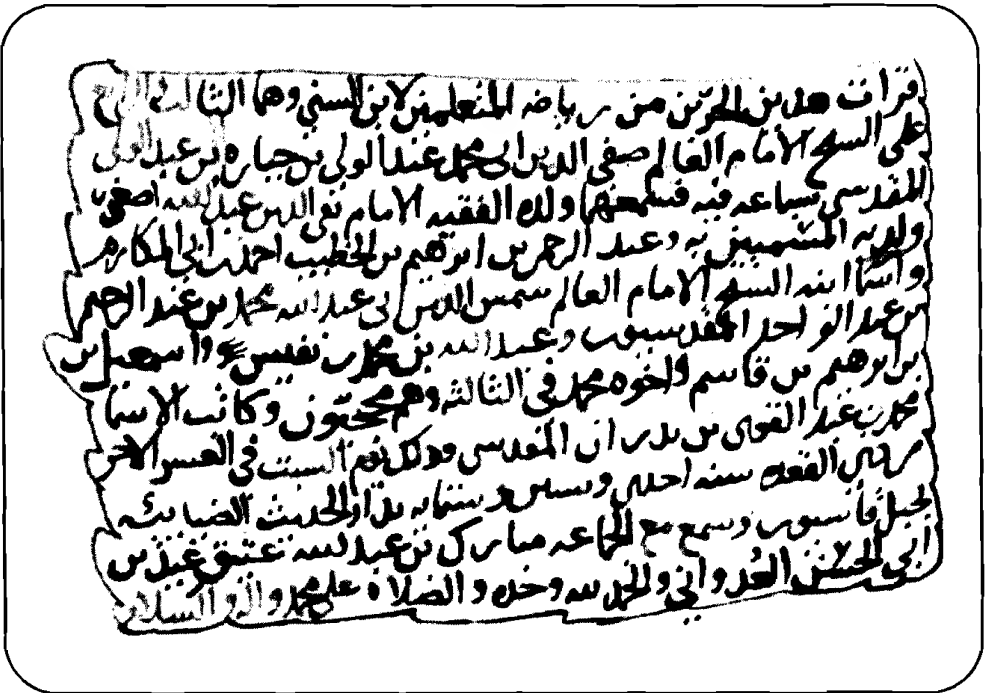 قرأت هذين الجزئين من رياضة المتعلمين لابن السني وهما الثالث والرابع
على الشيخ الامام العالم صفي الدين ابي محمد عبد الولي بن جبارة بن عبد الولي
المقدسي بسماعه فيه فسمعهما ولده الفقيه الامام تقي الدين عبد الله اصغر
ولديه المسميين به وعبد الرحمن بن ابرهيم بن الخطيب احمد بن ابي المكارم
واسما ابنه الشيخ الامام العالم شمس الدين ابي عبد الله محمد بن عبد الرحيم
بن عبد الواحد المقدسيون وعبد الله بن محمد بن نفيس واسمعيل بن
بن ابرهيم بن قاسم واخوه محمد في الثالثة وهم وكاتب الاسما
محمد بن عبد القوي بن بدران المقدسي وذلك يوم السبت في العشر الاخر
من ذي القعدة سنة احدى وستين وستمائه بدار الحديث الضيائية
بجبل قاسيون وسمع مع الجماعة مبارك بن عبد الله عتيق بن
ابي الحسن والحمد لله وحده والصلاة على محمد واله والسلام